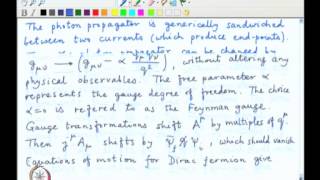 The photon propagator is generically sandwiched
between two currents (which produce end-points).
propagator can be changed by
gμν → (gμν - α qμqν/q²), without altering any
physical observables. The free parameter α
represents the gauge degree of freedom. The choice
α=0 is refered to as the Feynman gauge.
Gauge transformations shift Aᵘ by multiples of qᵘ.
Then γᵘAμ shifts by ψ̄f q̸ ψi, which should vanish
Equations of motion for Dirac fermion give